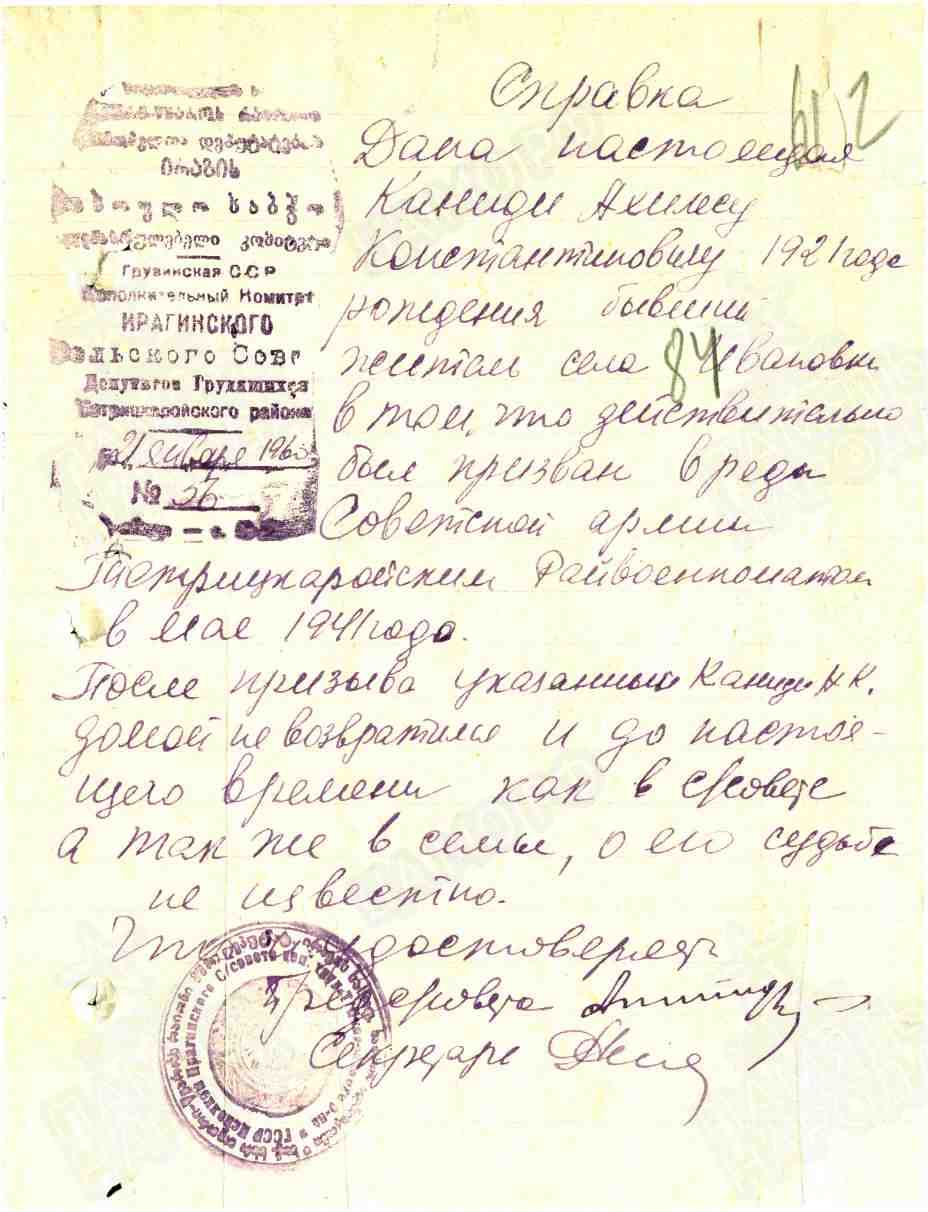 ირაგის
სასოფლო საბჭო
აღმასრულებელი კომიტეტი
Грузинская ССР
Исполнительный Комитет
ИРАГИНСКОГО
Сельского Сове
Депутатов Трудящихся
Тетрицкаройского района
21 января 1960
№ 36
Справка 612
Дана настоящая
Каниди Ахилесу
Константиновичу 1921 года
рождения бывший
жителю села Ивановки
84
в том, что действительно
был призван в ряды
Советской армии
Тетрицкаройским Райвоенкоматом
в мае 1941 года.
После призыва указанный Каниди А К.
домой не возвратился и до настоя-
щего времени как в с/совете
а так же в семье, о его судьбе
не известно.
Что удостоверяет
Пред с/совета
Секретарь